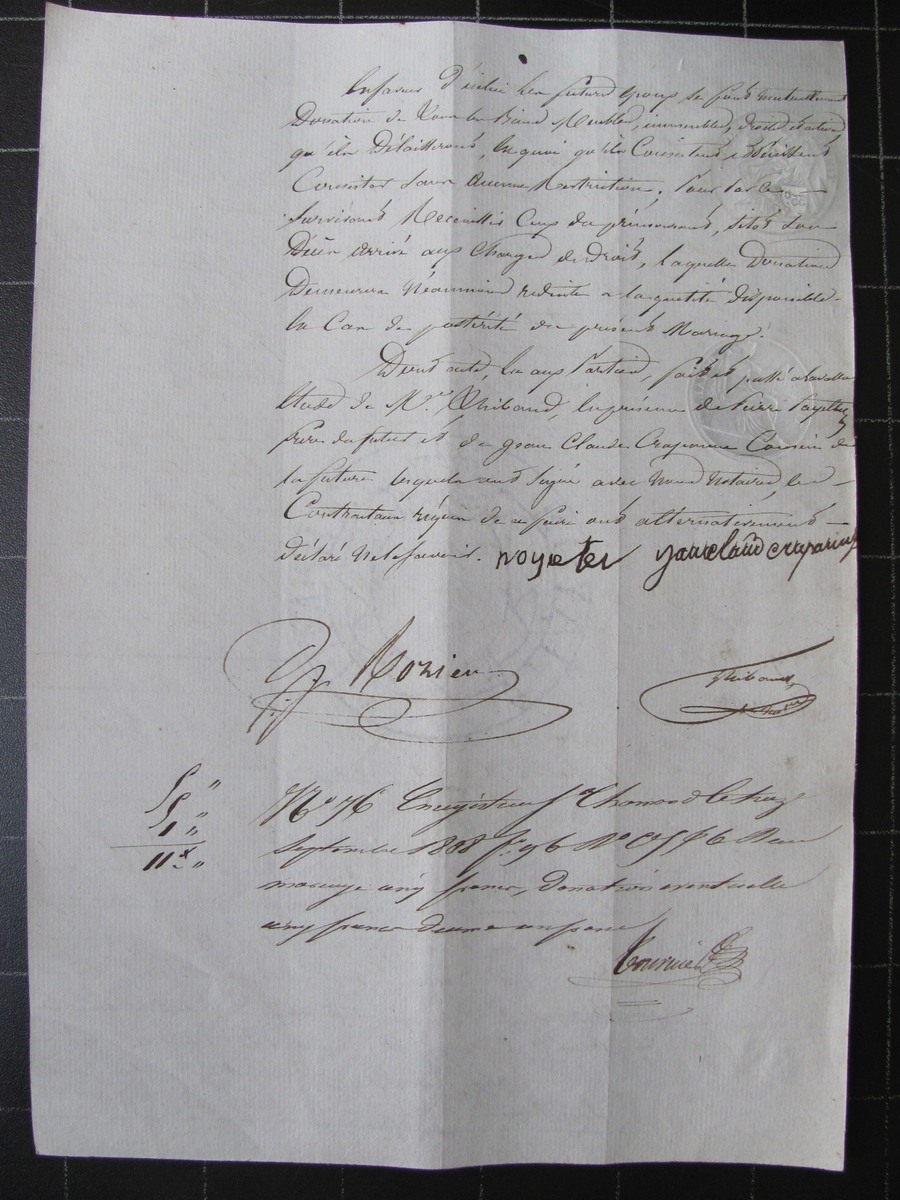 En faveur d'icelui les futurs époux se font mutuellement
Donation de tous les Biens Meubles, immeubles, droits et actions
qu'ils Délaisseront, En quoi qu'ils Consistent et Puissent
Consister sans Aucune Restriction, Pour par le
Survivant Recueillir Ceux du prémourant, sitôt son
Décès arrivé aux Charges de droit, laquelle Donation
Demeurera Néanmoins réduite a la quotité disponible
En Cas de postérité du présent Mariage.
Dont acte, lu aux Parties, fait et passé a
Etude de Me. Thibaud, En présence de Pierre
frère du futur et de Jean Claude Craponne Cousin de
la future lesquels ont Signé avec Nous Notaires, les
Contractans requis de ce faire ont alternativement
déclaré Ne le Savoir. noyeter Jan claud
Rozier
Thibaud
5 "
5 "
1 "
11 "
No 76 Enregistré a St Chamond le treize
Septembre 1808 fo 96 Vo C 5 & 6 Reçu
mariage cinq francs, Donation eventuelle
cinq francs dixme un franc